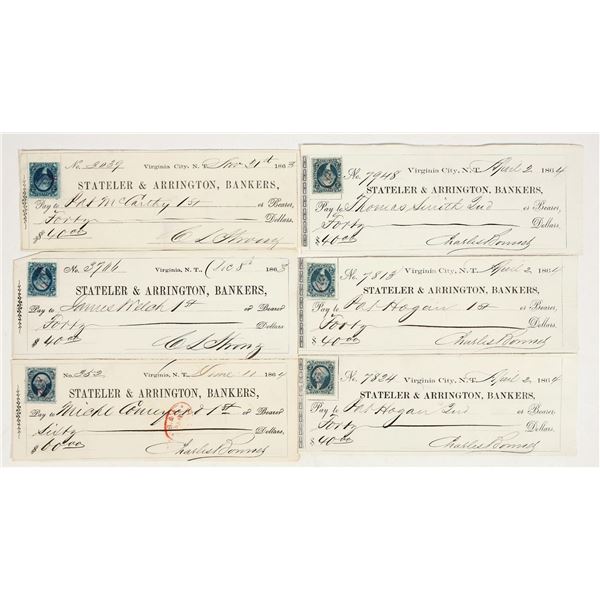 No. 3039 Virginia City, N. T. Nov 21st 1863
STATELER & ARRINGTON, BANKERS,
Pay to Pat McCarthy 1st or Bearer,
Forty Dollars,
$40.00 C L Strong
No. 3706 Virginia, N. T., Dec 8th 1863
STATELER & ARRINGTON, BANKERS,
Pay to James Welch 1st or Bearer
Forty Dollars
$40.00 C L Strong
No. 252 Virginia, N. T. June 11 1864
STATELER & ARRINGTON, BANKERS,
Pay to Michl 1st or Bearer
Sixty Dollars,
$60.00 Charles Bonner
No. 7948 Virginia City, N.T. April 2, 1864
STATELER & ARRINGTON, BANKERS,
Pay to Thomas Smith 2nd or Bearer,
Forty Dollars,
$40.00 Charles Bonner
No. 7813 Virginia City, N.T. April 2, 1864
STATELER & ARRINGTON, BANKERS,
Pay to Pat Hogan 1st or Bearer,
Forty Dollars,
$40.00 Charles Bonner
No. 7824 Virginia City, N.T. April 2, 1864
STATELER & ARRINGTON, BANKERS,
Pay to Pat Hogan 2nd or Bearer,
Forty Dollars,
$40.00 Charles Bonner